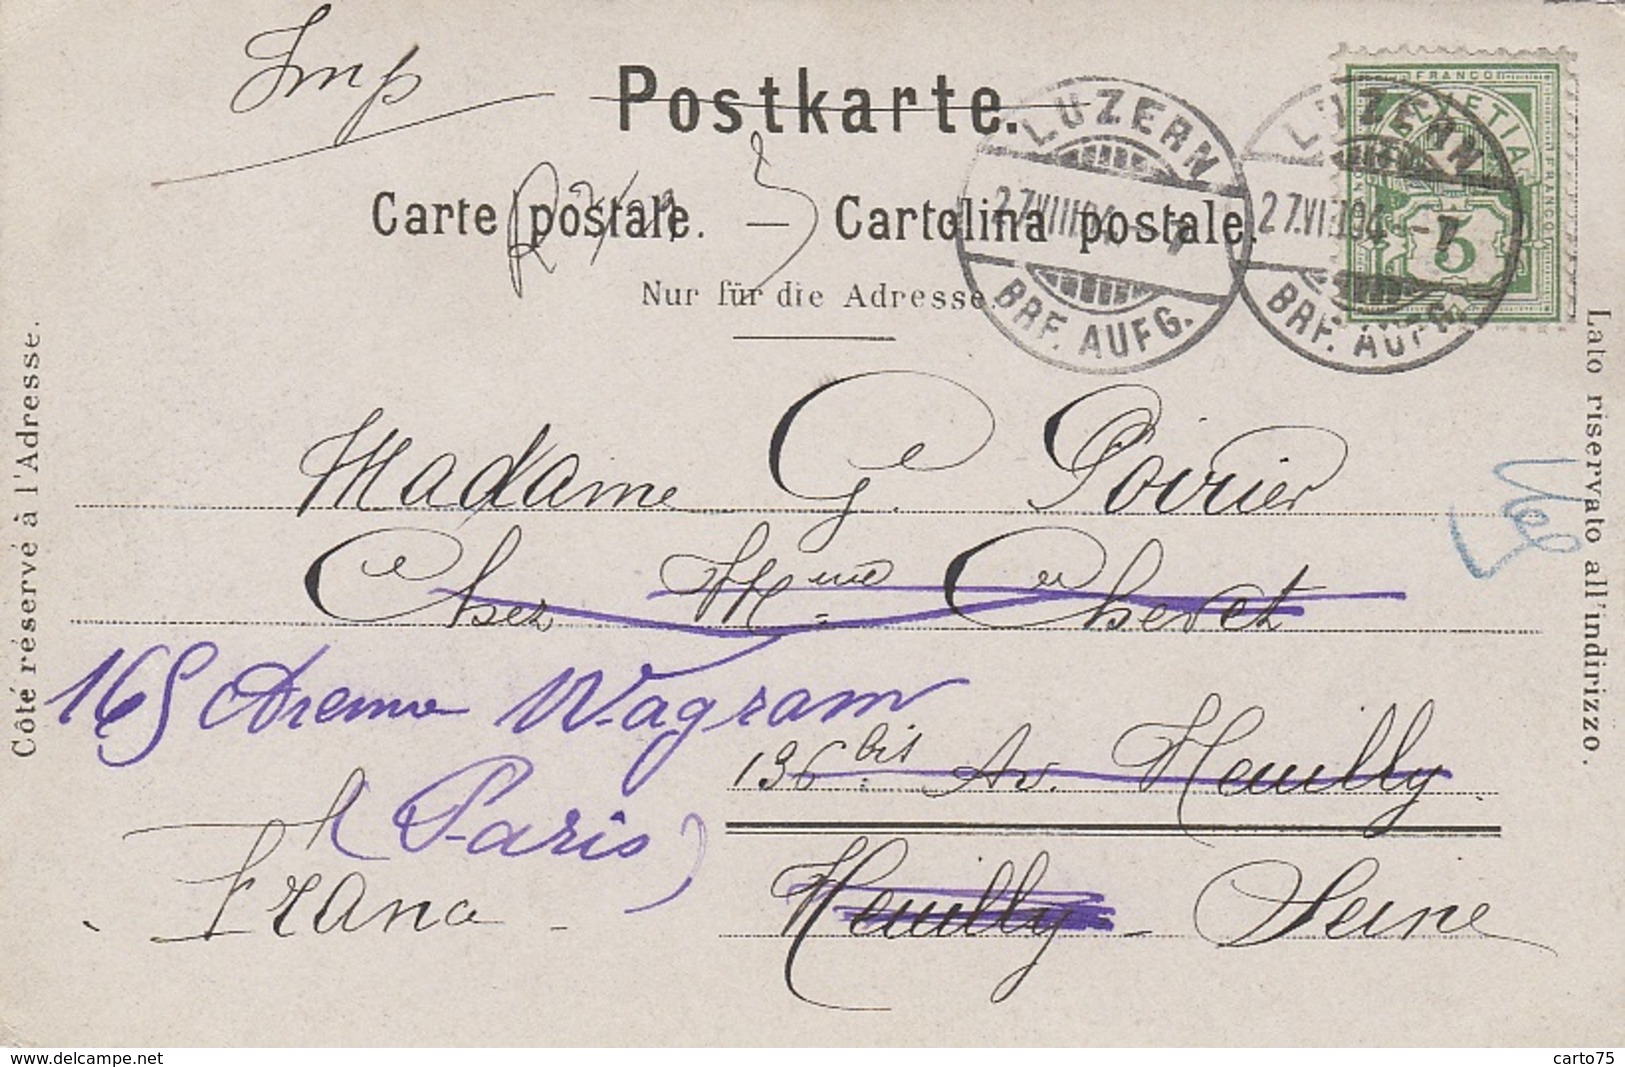 Imp
Postkarte.
Carte postale. — Cartolina postale.
Nur für die Adresse.
LUZERN
27.VIII.04.–7
BRF. AUFG.
LUZERN
27.VIII.04.–7
BRF. AUFG.
FRANCO
HELVETIA
FRANCO
5
Côté réservé à l'Adresse.
Lato riservato all'indirizzo.
Madame G. Poirier
Chez Mme Chevet
165 Avenue Wagram
136 bis Av. Neuilly
(Paris)
France
Neuilly - Seine
www.delcampe.net
carto75